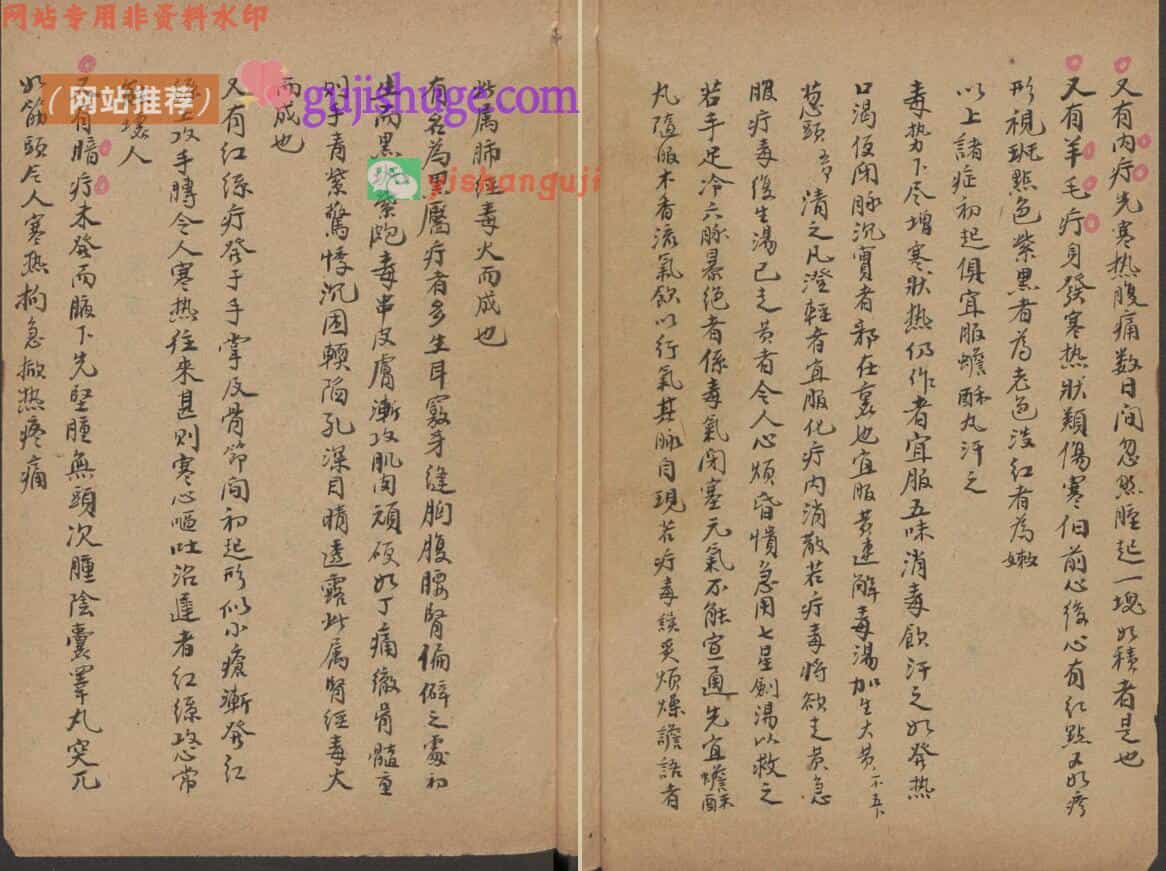 网站专用非资料水印
（网站推荐）
gujishuge.com
yishanguji
此属肺经毒火而成也
有名為黑靨疔者多生耳竅牙縫胸腹腰腎偏僻之處初
生
黑
紫皰毒串皮膚漸攻肌肉頑硬如丁痛徹骨髓重
则手青紫驚悸沉困軟陷孔深目睛透露此属腎经毒火
而成也
又有红絲疔發于手掌及骨節间初起形似小瘡漸發红
攻手膊令人寒热往来甚则寒心嘔吐治遲者红絲攻心常
壞人
又有暗疔未發而腋下先坚腫無頭次腫陰囊睪丸突兀
如筋頭令人寒热拘急掀热疼痛
又有内疔先寒热腹痛数日间忽然腫起一塊如積者是也
又有羊毛疔身發寒热状類傷寒但前心後心有红點又如疹
形視斑點色紫黑者為老色淡红者為嫩
以上諸症初起俱宜服蟾酥丸汗之
毒势不尽增寒状热仍作者宜服五味消毒飲汗之如發热
口渴便闭脉沉實者邪在裏也宜服黄連解毒湯加生大黄
葱頭
清之凡澄輕者宜服化疔内消散若疔毒将欲走黄急
服疔毒復生湯已走黄者令人心烦昏憒急用七星劍湯以救之
若手足冷六脉暴绝者係毒氣闭塞元氣不能宣通先宜蟾酥
丸隨服木香流氣飲以行氣其脉自现若疔毒
烦燥譫語者